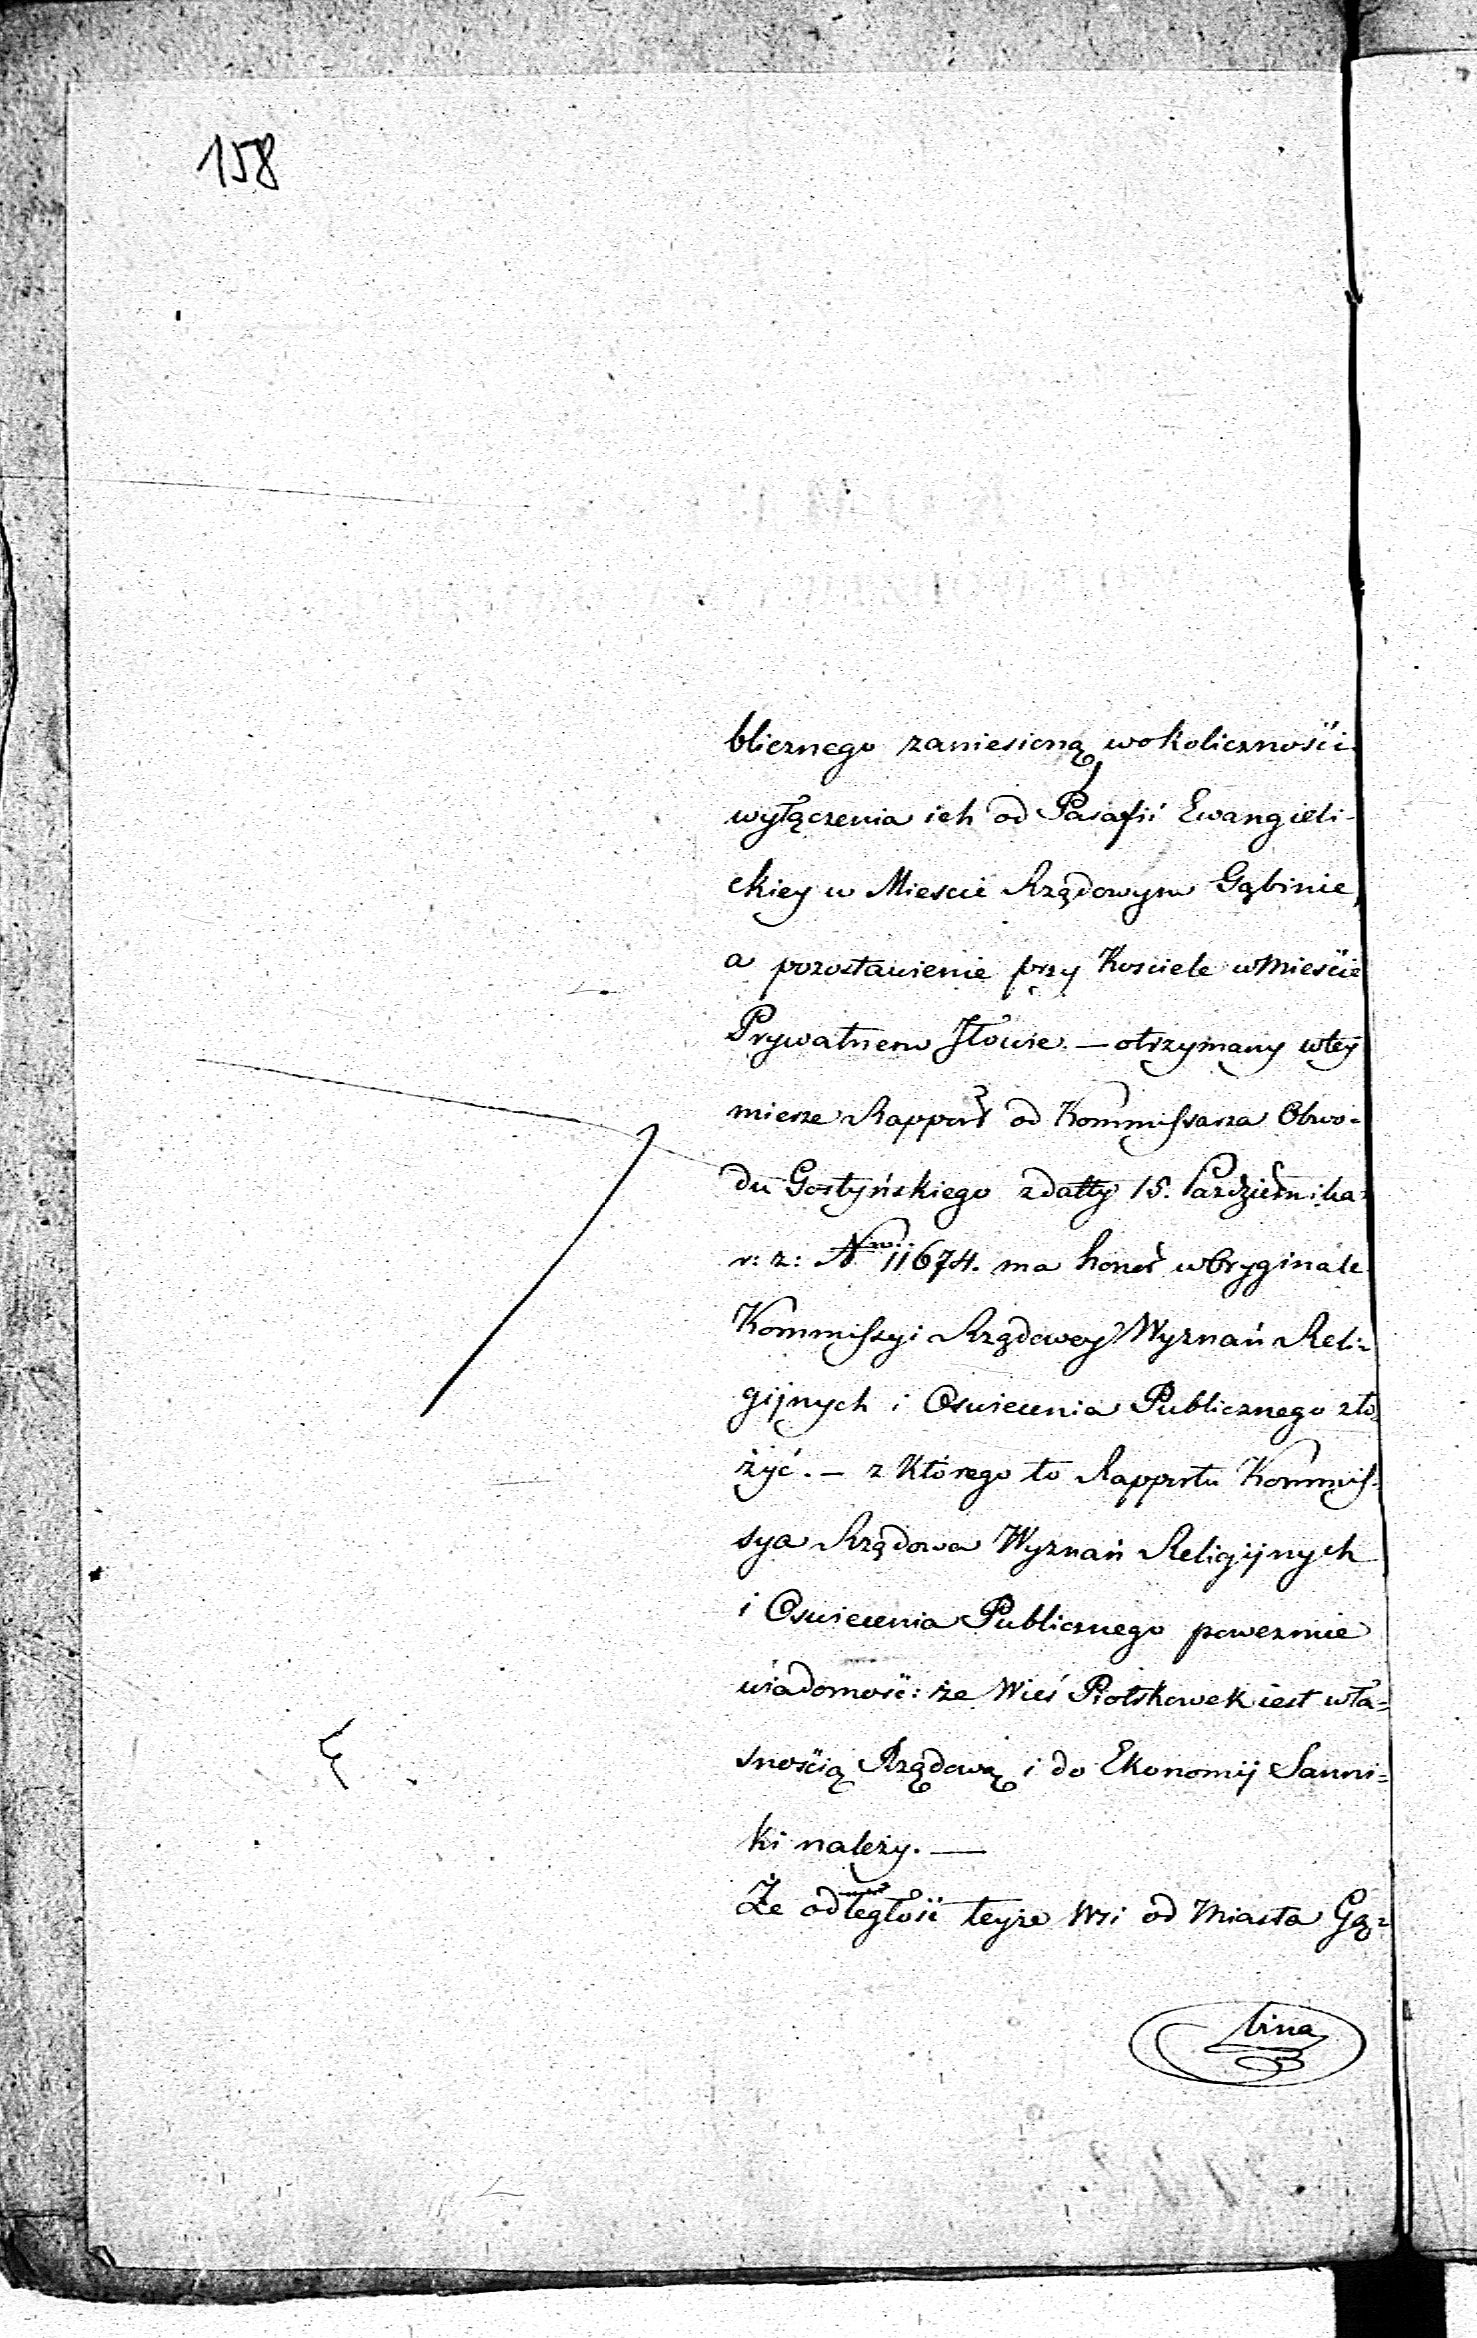 158
blicznego zaniesioną wokoliczności
wyłączenia ich od Parafii Ewangieli-
ckiey w Miescie Rządowym Gąbinie,
a pozostawienie przy Kosciele w Mieście
Prywatnem Iłowie. — otrzymany wtey
mierze Rapport od Kommissarza Obwo-
du Gostyńskiego zdatty 15. Pazdziernika
r: z: Nrw. 11674. ma honor wOryginale
Kommissyi Rządowey Wyznań Reli-
gijnych i Oswiecenia Publicznego zło-
żyć. — z Którego to Rapportu Kommis-
sya Rządowa Wyznań Religijnych
i Oswiecenia Publicznego powezmie
wiadomość: że Wieś Piotrkowek iest wła-
snością Rządową i do Ekonomij Sanni-
ki należy. —
Że odległość teyże Wsi od Miasta Gą-
bina